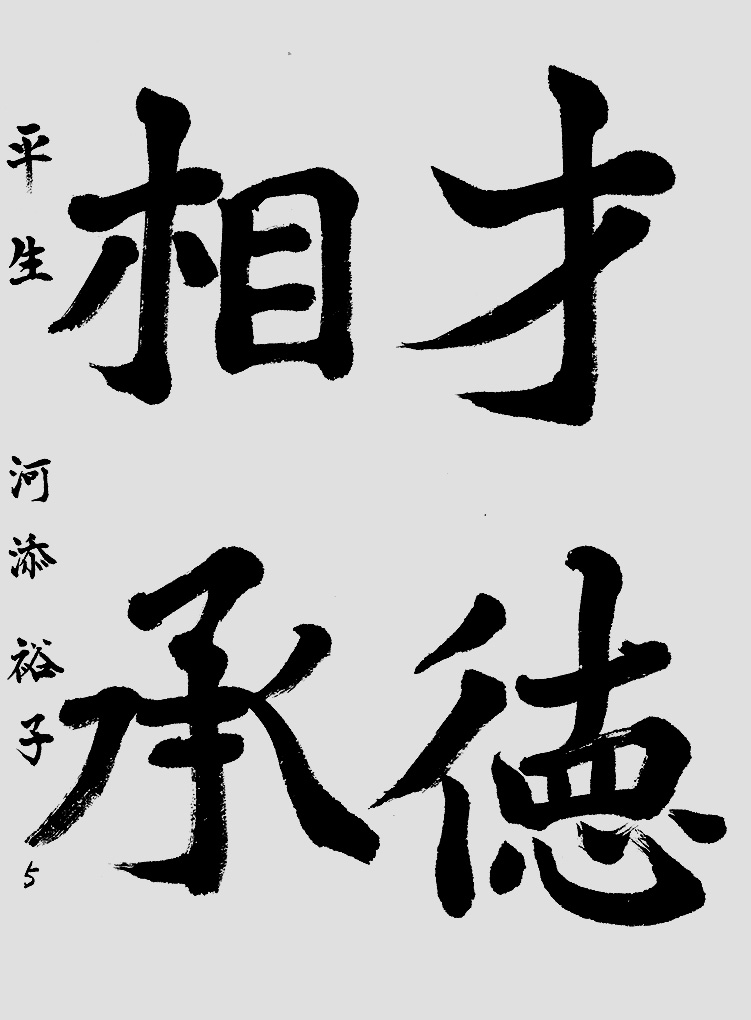 才徳
相承
平生 河添裕子 5